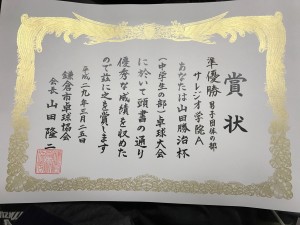 賞状
準優勝 男子団体の部
サレジオ学院A
あなたは山田勝治杯
(中学生の部)卓球大会
に於いて頭書の通り
優秀な成績を収めた
ので茲に之を賞します
平成二九年三月二五日
鎌倉市卓球協会
会長 山田隆二